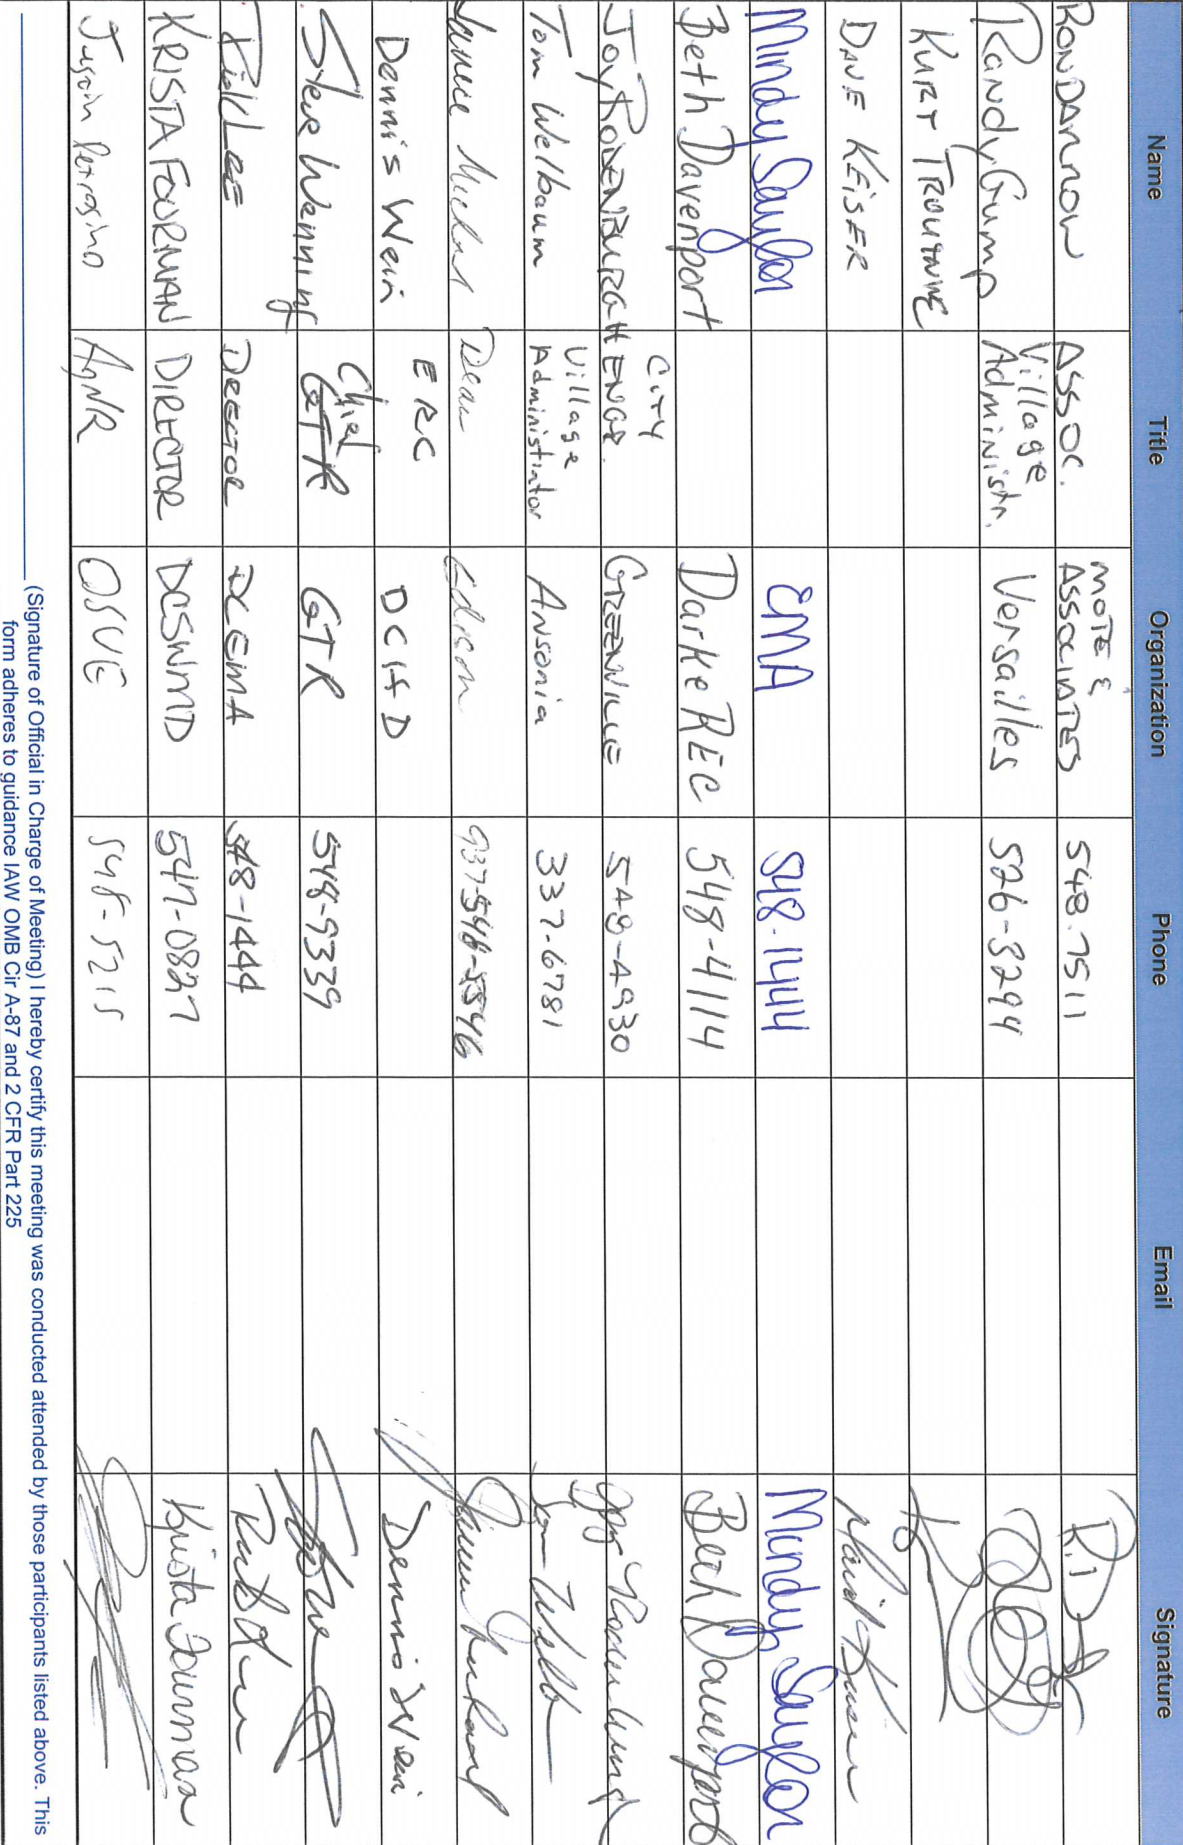 Name Title Organization Phone Email Signature
RON DARROW ASSOC. MOTE & ASSOCIATES 548.7511
Randy Gump Village Administr. Versailles 526-3294
KURT TROUTWINE
DAVE KEISER
Mindy Saylor EMA 548-1444 Mindy Saylor
Beth Davenport Darke REC 548-4114 Beth Davenport
JOY RODENBURGH CITY ENGR. GREENVILLE 548-4930
Tom Welbaum Village Administrator Ansonia 337-6781
Dean Edison 937-548-5546
Dennis Wein ERC DCHD Dennis Wein
Steve Wenning Chief GTR GTR 548-9339
Rick LEE DIRECTOR DCEMA 548-1444
KRISTA FOURMAN DIRECTOR DCSWMD 547-0827 Krista Fourman
AgNR OSUE 548-5215
(Signature of Official in Charge of Meeting) I hereby certify this meeting was conducted attended by those participants listed above. This
form adheres to guidance IAW OMB Cir A-87 and 2 CFR Part 225